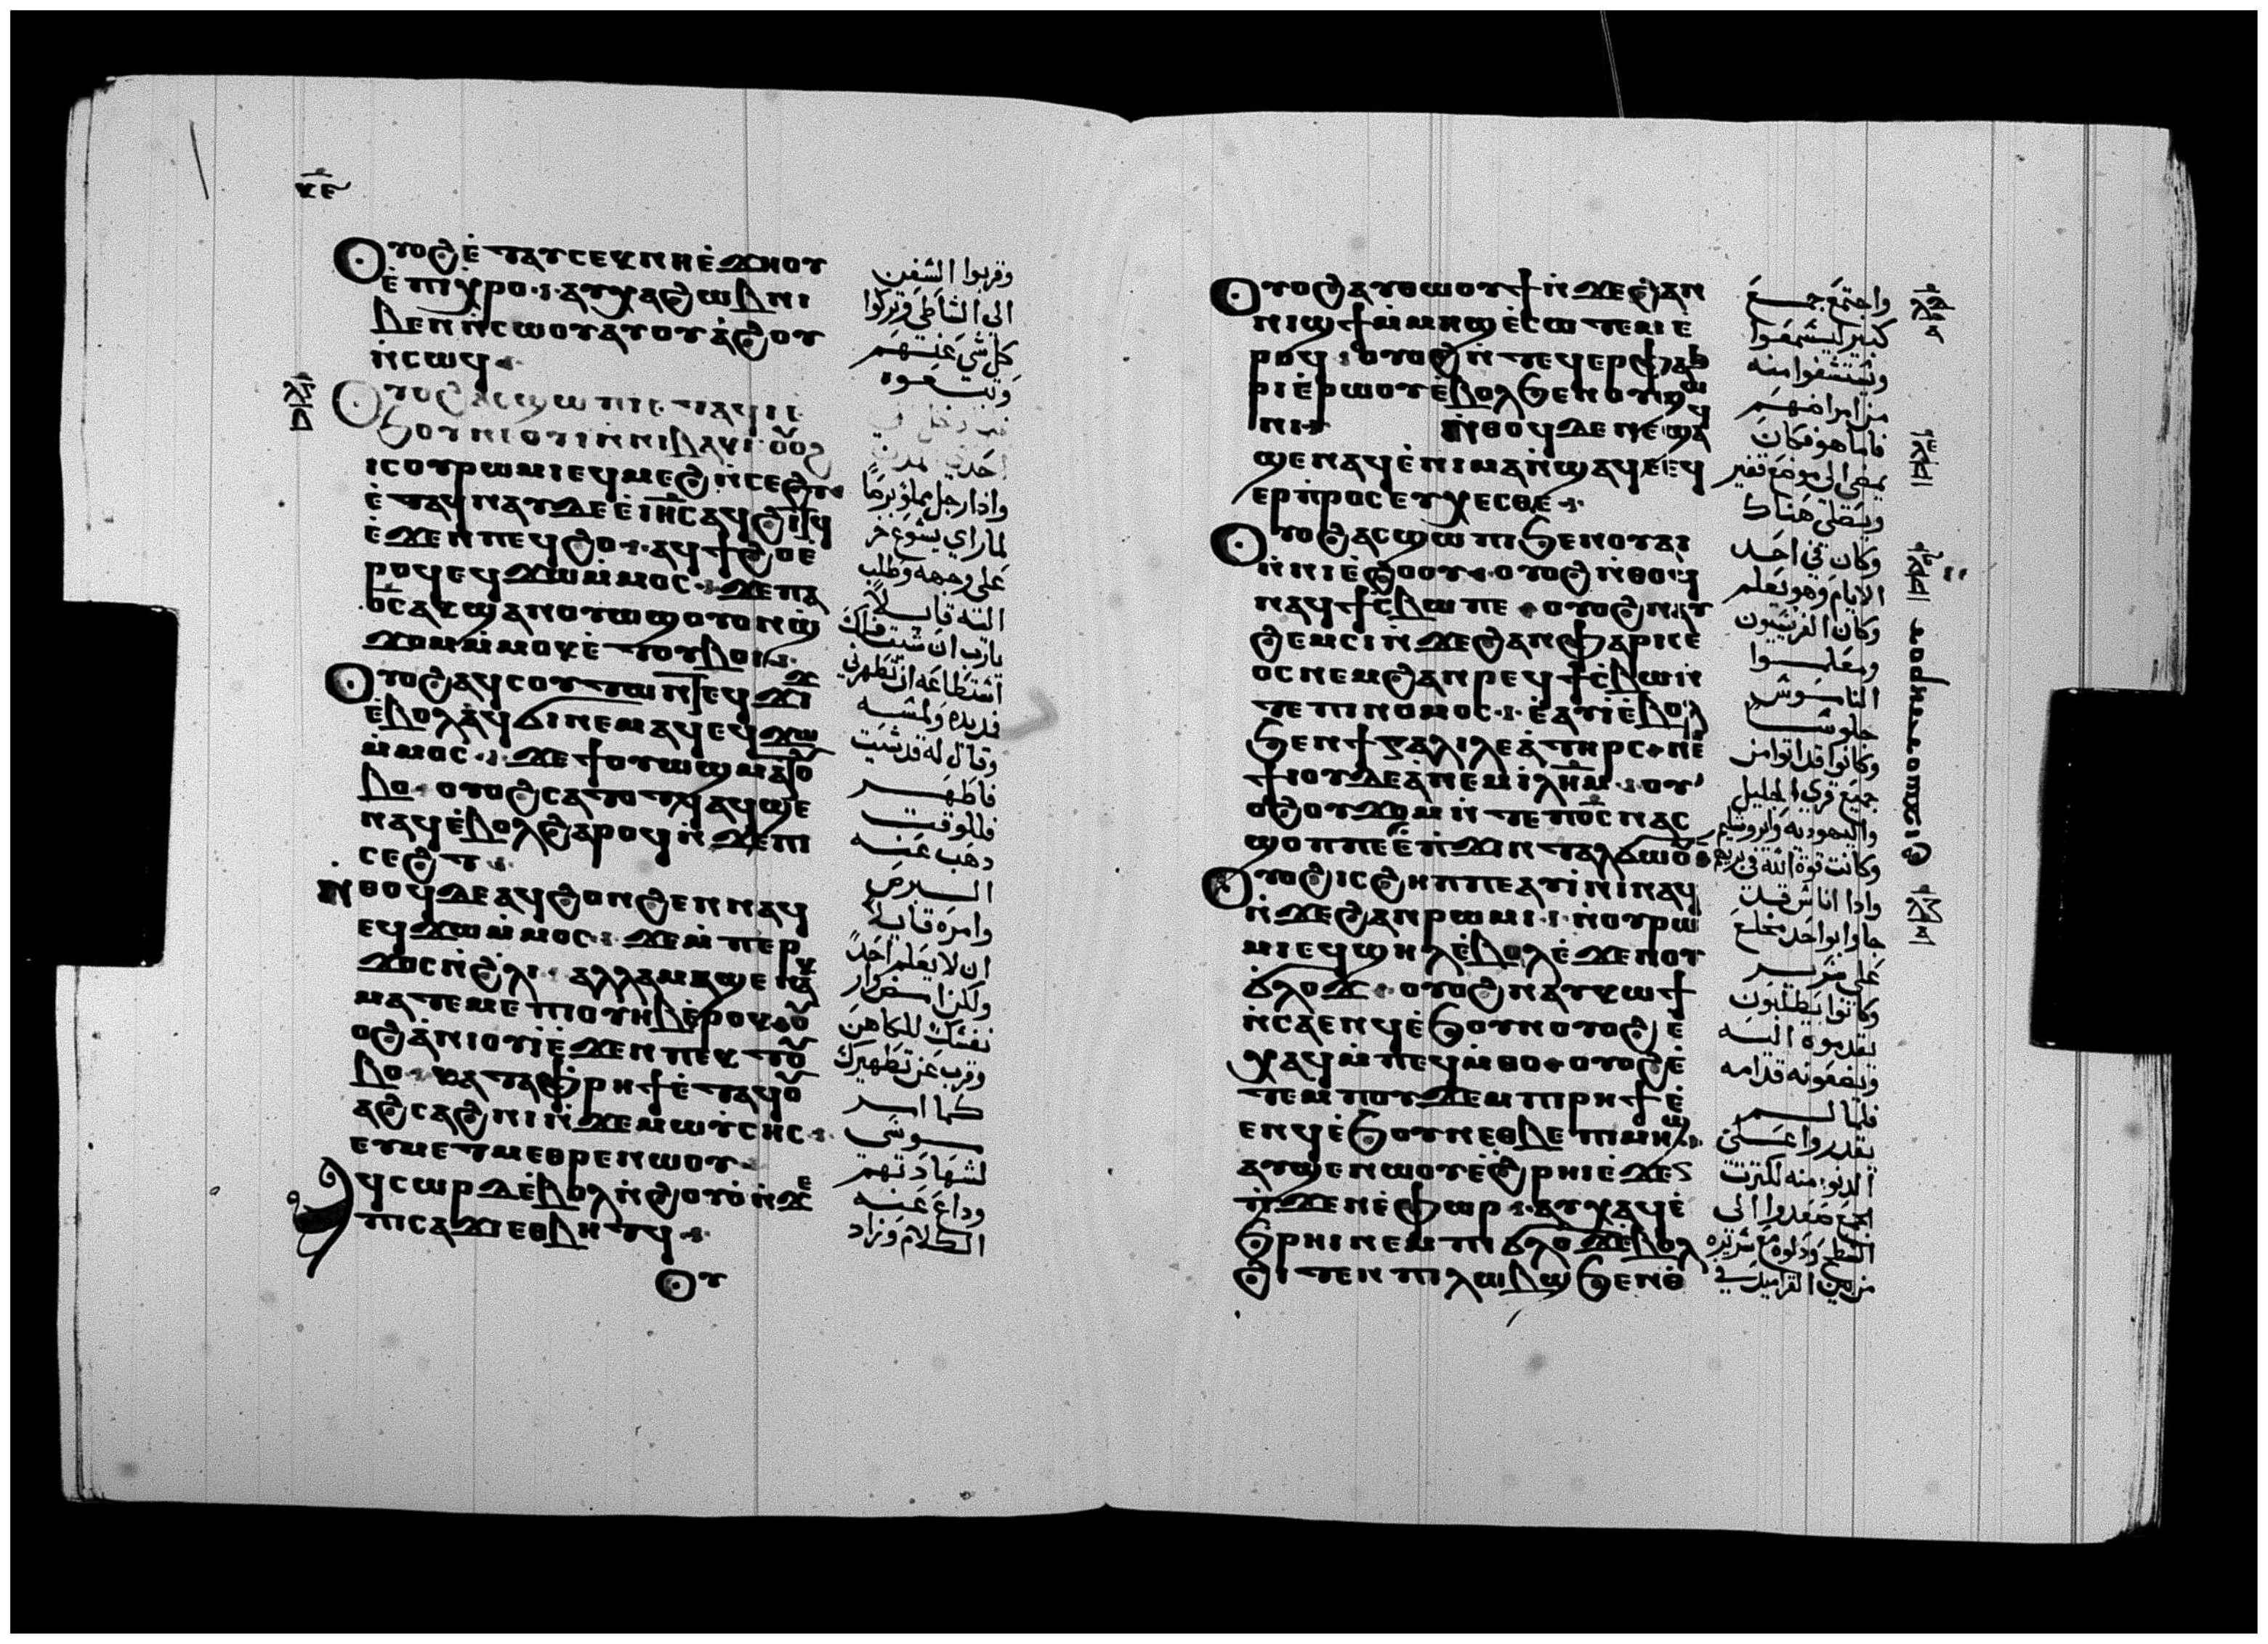 ⲕⲉ
Ⲟⲩⲟϩ ⲉ̇ⲧⲁⲩⲥⲉⲕ ⲛⲓⲉ̇ϫⲏⲟⲩ
ⲉ̇ⲡⲓⲭⲣⲟ ⲁⲩⲭⲁ ϩⲱⲃ ⲛⲓ
ⲃⲉⲛ ⲛ̇ⲥⲱⲟⲩ ⲁⲩⲟⲩⲁ̇ϩⲟⲩ
ⲛ̇ⲥⲱϥ
ⲗⲅ
Ⲟⲩⲟϩ ⲁⲥϣⲱⲡⲓ ⲉⲧⲁϥⲓ ⲉ̇
ϧⲟⲩⲛ ⲓ̇ⲟⲩⲓ̇ ⲛ̇ⲛⲓⲃⲁⲕⲓ ⲟⲩⲟϩ
ⲓⲥ ⲟⲩⲣⲱⲙⲓ ⲉϥⲙⲉϩ ⲛ̇ⲥⲉϩⲧ
ⲉ̇ⲧⲁϥⲛⲁⲩ ⲇⲉ ⲉ̇ⲓⲏⲥ ⲁϥϩⲓⲧϥ
ⲉ̇ϫⲉⲛ ⲡⲉϥϩⲟ ⲁϥϯϩⲟ ⲉ̇
ⲣⲟϥ ⲉϥϫⲱ ⲙ̇ⲙⲟⲥ ϫⲉ ⲡⲁ
ⲟ̅ⲥ̅ ⲁⲕϣⲁⲛⲟⲩⲱϣ ⲟⲩⲟⲛ ϣ
ϫⲟⲙ ⲙ̇ⲙⲟⲕ ⲉ̇ⲧⲟⲩⲃⲟⲓ
Ⲟⲩⲟϩ ⲁϥⲥⲟⲩⲧⲱⲛ ⲧⲉϥϫⲓϫ
ⲉ̇ⲃⲟⲗ ⲁϥϭⲓ ⲛⲉⲙⲁϥ ⲉϥϫⲱ
ⲙ̇ⲙⲟⲥ ϫⲉ ϯⲟⲩⲱϣ ⲙⲁⲧⲟⲩ
ⲃⲟ ⲟⲩⲟϩ ⲥⲁⲧⲟⲧϥ ⲁϥϣⲉ
ⲛⲁϥ ⲉ̇ⲃⲟⲗ ϩⲁⲣⲟϥ ⲛ̇ϫⲉ ⲡⲓ
ⲥⲉϩⲧ
Ⲛⲑⲟϥ ⲇⲉ ⲁϥϩⲟⲛϩⲉⲛ ⲛⲁϥ
ⲉϥϫⲱ ⲙ̇ⲙⲟⲥ ϫⲉ ⲙ̇ⲡⲉⲣ
ϫⲟⲥ ⲛ̇ϩⲗⲓ ⲁⲗⲗⲁ ⲙⲁϣⲉ ⲛⲁⲕ
ⲙⲁⲧⲁⲙⲉ ⲡⲓⲟⲩⲏⲃ ⲉ̇ⲣⲟⲕ ⲟⲩ
ⲟϩ ⲁ̇ⲛⲓⲟⲩⲓ̇ ⲉ̇ϫⲉⲛ ⲡⲉⲕⲧⲟⲩ
ⲃⲟ ⲕⲁⲧⲁ ⲫⲣⲏϯ ⲉ̇ⲧⲁϥⲟⲩ
ⲁϩⲥⲁϩⲛⲓ ⲛ̇ϫⲉ ⲙⲱⲩⲥⲏⲥ
ⲉⲩⲙⲉⲧⲙⲉⲑⲣⲉ ⲛⲱⲟⲩ
Ⲁϥⲥⲱⲣ ⲇⲉ ⲉ̇ⲃⲟⲗ ⲛ̇ϩⲟⲩⲟ̇ ⲛ̇ϫⲉ
ⲡⲓⲥⲁϫⲓ ⲉⲑⲃⲏⲧϥ
Ⲟⲩ
وقربوا السفن
الى الشاطي وتركوا
كل شي عنهم
وتبعوه
احدى المدن
واذا رجل مملو برصًا
لما راي يسوع خر
على وجهه وطلب
اليه قايلا
يارب ان شيت فلك
استطاعه ان تطهرني
فمد يده ولمسه
وقال له قد شيت
فاطهر
فللوقت
ذهب عنه
البرص
وامره قايلا
ان لا يعلم احدًا
ولكن امض وار
نفسك للكاهن
وقرب عن تطهيرك
كما امر
موسى
لشهادتهم
وذاع عنه
الكلام وزاد
Ⲟⲩⲟϩ ⲁⲩⲑⲱⲟⲩϯ ⲛ̇ϫⲉ ϩⲁⲛ
ⲛⲓϣϯ ⲙ̇ⲙⲏϣ ⲉ̇ⲥⲱⲧⲉⲙ ⲉ̇
ⲣⲟϥ ⲟⲩⲟϩ ⲛ̇ⲧⲉϥⲉⲣⲫⲁϧ
ⲣⲓ ⲉ̇ⲣⲱⲟⲩ ⲉ̇ⲃⲟⲗ ϧⲉⲛ ⲛⲟⲩϣⲱ
ⲛⲓ ⲛ̇ⲑⲟϥ ⲇⲉ ⲛⲉϣⲁ
ϣⲉ ⲛⲁϥ ⲉ̇ⲛⲓⲙⲁⲛ̇ϣⲁϥⲉ ⲉϥ
ⲉⲣⲡⲣⲟⲥⲉⲩⲭⲉⲥⲑⲉ
Ⲟⲩⲟϩ ⲁⲥϣⲱⲡⲓ ϧⲉⲛ ⲟⲩⲁⲓ
ⲛ̇ⲛⲓⲉ̇ϩⲟⲟⲩ ⲟⲩⲟϩ ⲛ̇ⲑⲟϥ
ⲛⲁϥϯⲥ̇ⲃⲱ ⲡⲉ ⲟⲩⲟϩ ⲛⲁⲩ
ϩⲉⲙⲥⲓ ⲛ̇ϫⲉ ϩⲁⲛⲫⲁⲣⲓⲥⲉ
ⲟⲥ ⲛⲉⲙ ϩⲁⲛⲣⲉϥϯⲥ̇ⲃⲱ ⲛ̇
ⲧⲉ ⲡⲓⲛⲟⲙⲟⲥ ⲉ̇ⲁⲩⲓ̇ ⲉ̇ⲃⲟⲗ
ϧⲉⲛ ϯⲅⲁⲗⲓⲗⲉⲁ̇ ⲧⲏⲣⲥ ⲛⲉⲙ
ϯⲓⲟⲩⲇⲉⲁ̇ ⲛⲉⲙ ⲓⲗⲏⲙ ⲟⲩ
ⲟϩ ⲟⲩϫⲟⲙ ⲛ̇ⲧⲉ ⲡⲟ̅ⲥ̅ ⲛⲁⲥ
ϣⲟⲡ ⲡⲉ ⲉ̇ⲡϫⲓⲛⲧⲁⲗϭⲱⲟⲩ
Ⲟⲩⲟϩ ⲓⲥ ϩⲏⲡⲡⲉ ⲁⲩⲓ̇ⲛⲓ ⲛⲁϥ
ⲛ̇ϫⲉ ϩⲁⲛⲣⲱⲙⲓ ⲛ̇ⲟⲩⲣⲱ
ⲙⲓ ⲉϥϣⲏⲗ ⲉ̇ⲃⲟⲗ ⲉ̇ϫⲉⲛ ⲟⲩ
ϭⲗⲟϫ ⲟⲩⲟϩ ⲛⲁⲩⲕⲱϯ
ⲛ̇ⲥⲁⲉⲛϥ ⲉ̇ϧⲟⲩⲛ ⲟⲩⲟϩ ⲉ̇
ⲭⲁϥ ⲙ̇ⲡⲉϥⲙ̇ⲑⲟ ⲟⲩⲟϩ ⲉ̇
ⲧⲉⲙⲡⲟⲩϫⲉⲙ ⲡⲓⲣⲏϯ ⲉ̇
ⲉⲛϥ ⲉ̇ϧⲟⲩⲛ ⲉⲑⲃⲉ ⲡⲓⲙⲏϣ
ⲁⲩϣⲉ ⲛⲱⲟⲩ ⲉ̇ϩⲣⲏⲓ ⲉ̇ϫⲉ
ⲛ̇ϫⲉⲛⲉ̇ⲫⲱⲣ ⲁⲩⲭⲁϥ ⲉ̇
ϧⲣⲏⲓ ⲛⲉⲙ ⲡⲓϭⲗⲟϫ ⲉ̇ⲃⲟⲗ
ϩⲓⲧⲉⲛ ⲡⲓⲗⲱⲃϣ ϧⲉⲛ ⲑ
واجتمع جمع
كبير ليسمعوا
ويستشفوا منه
من امراضهم
فاما هو فكان
يمضي الى موضع قفير
ويصلى هناك
وكان في احد
الايام وهو يعلم
وكان الفريسيون
ومعلموا
الناموس
جلوسًا
وكانوا قد اتوا من
جميع قرى الجليل
واليهوديه وايروشليم
وكانت قوة الله في بريهم
واذا اناس قد
جاوا بواحد مخلع
على سرير
وكانوا يطلبون
تقدموه اليه
ويضعونه قدامه
فلما لم
يقدروا على
الدنو منه لكثرت
الجمع صعدوا الى
السطح ودلوه مع سريره
من بين القراميد في
ⲗⲇ
ⲗⲉ
ⲗⲋ
ⲗⲍ